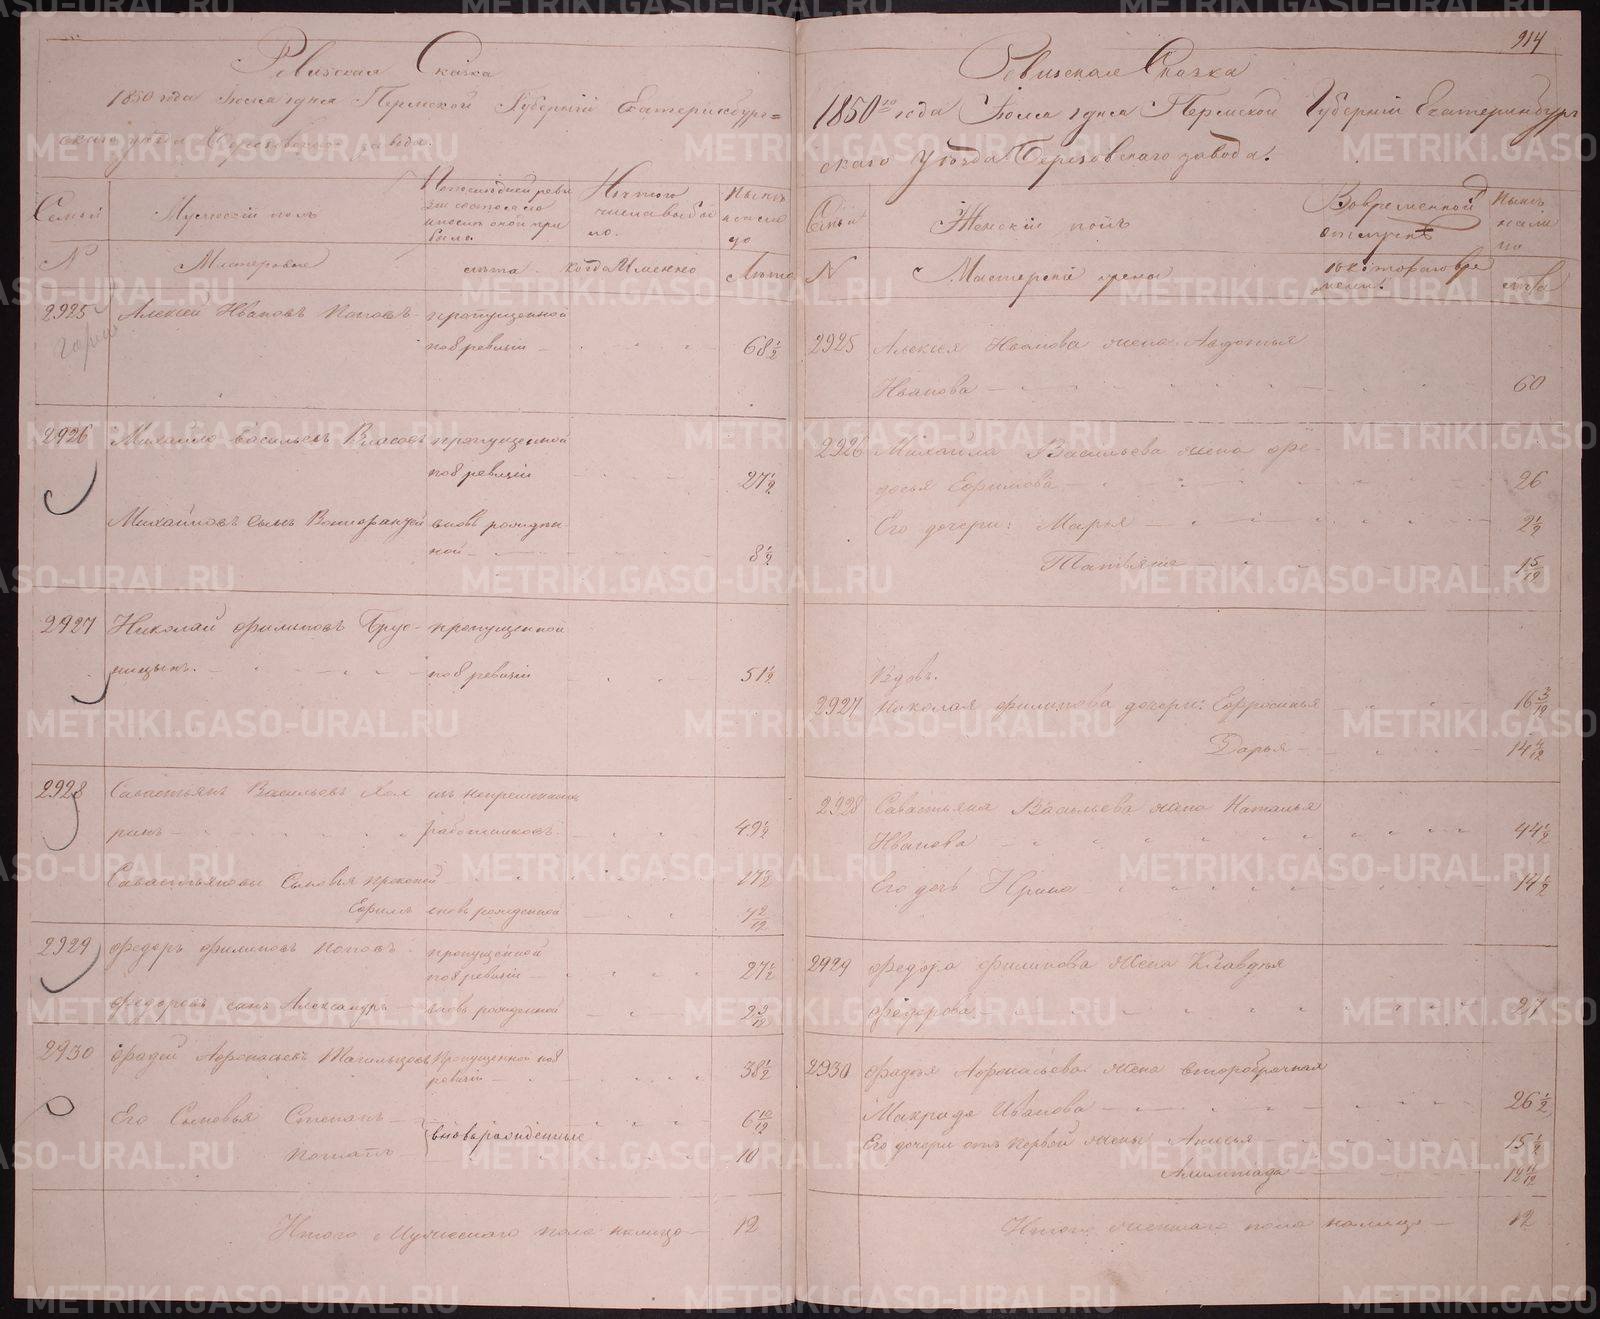 Ревизская Сказка
1850 года Июля 1 дня Пермской Губернии Екатеринбург=
скаго уезда Березовскаго завода.
Семьи
Мужескій полъ
По последней реви
зіи состояло
и после оной при
было
Изъ того
числа выбы
ло.
Ныне
на лицо
№
Мастеровые
лета
когда именно
Лета
2925
Алексей Ивановъ Поповъ
пропущенной
по 8 ревизіи
68 1/2
2926
Михайло Васильевъ Власовъ
пропущенной
по 8 ревизіи
27 1/2
Михайловъ сынъ
вновь рожден
ной
8 1/2
2927
Николай Филиповъ Брус-
ницынъ.
пропущенной
по 8 ревизіи
51 1/2
2928
Савастьянъ Васильевъ
ринъ
изъ непременныхъ
работниковъ
49 1/2
Савастьяновы Сыновья Прокопей
17 1/2
Ефимъ
вновь рожденной
2929
Федоръ Филиповъ Поповъ
пропущенной
по 8 ревизіи
27 1/2
Федоровъ сынъ Александръ
вновь рожденной
2 3/12
2930
Фадей Афонасьевъ Тагильцовъ
Пропущенной по 8
ревизіи
38 1/2
Его Сыновья Степанъ
6 10/12
вноворожденные
10
Итого Мужескаго пола налицо
12
914
Ревизская Сказка
1850 го года Июля 1 дня Пермской Губерніи Екатеринбург
скаго Уезда Березовскаго завода.
Семьи
Женскій полъ
Во временной
отлучке
Ныне
на ли
цо
№
Мастерскія жены
съ котораго вре
мени.
лета
2925
Алексея Иванова жена Авдотья
Иванова
60
2926
Михайла Васильева жена Фе-
досья Ефимова
26
Его дочери: Марья
2 1/2
Татьяна
2927
Вдовъ.
Николая Филипова дочери: Ефросинья
16 3/12
Дарья
14 4/12
2928
Савастьяна Васильева жена Наталья
Иванова
44 1/2
Его дочь Ирина
14 1/2
2929
Федора Филипова жена Клавдья
Федорова
27
2930
Фадея Афонасьева жена второбрачная
Макрида Иванова
26 1/2
Его дочери отъ первой жены Анисья
15 1/2
Алимпіада
12 11/12
Итого женскаго пола налицо
12
METRIKI.GASO-URAL.RU